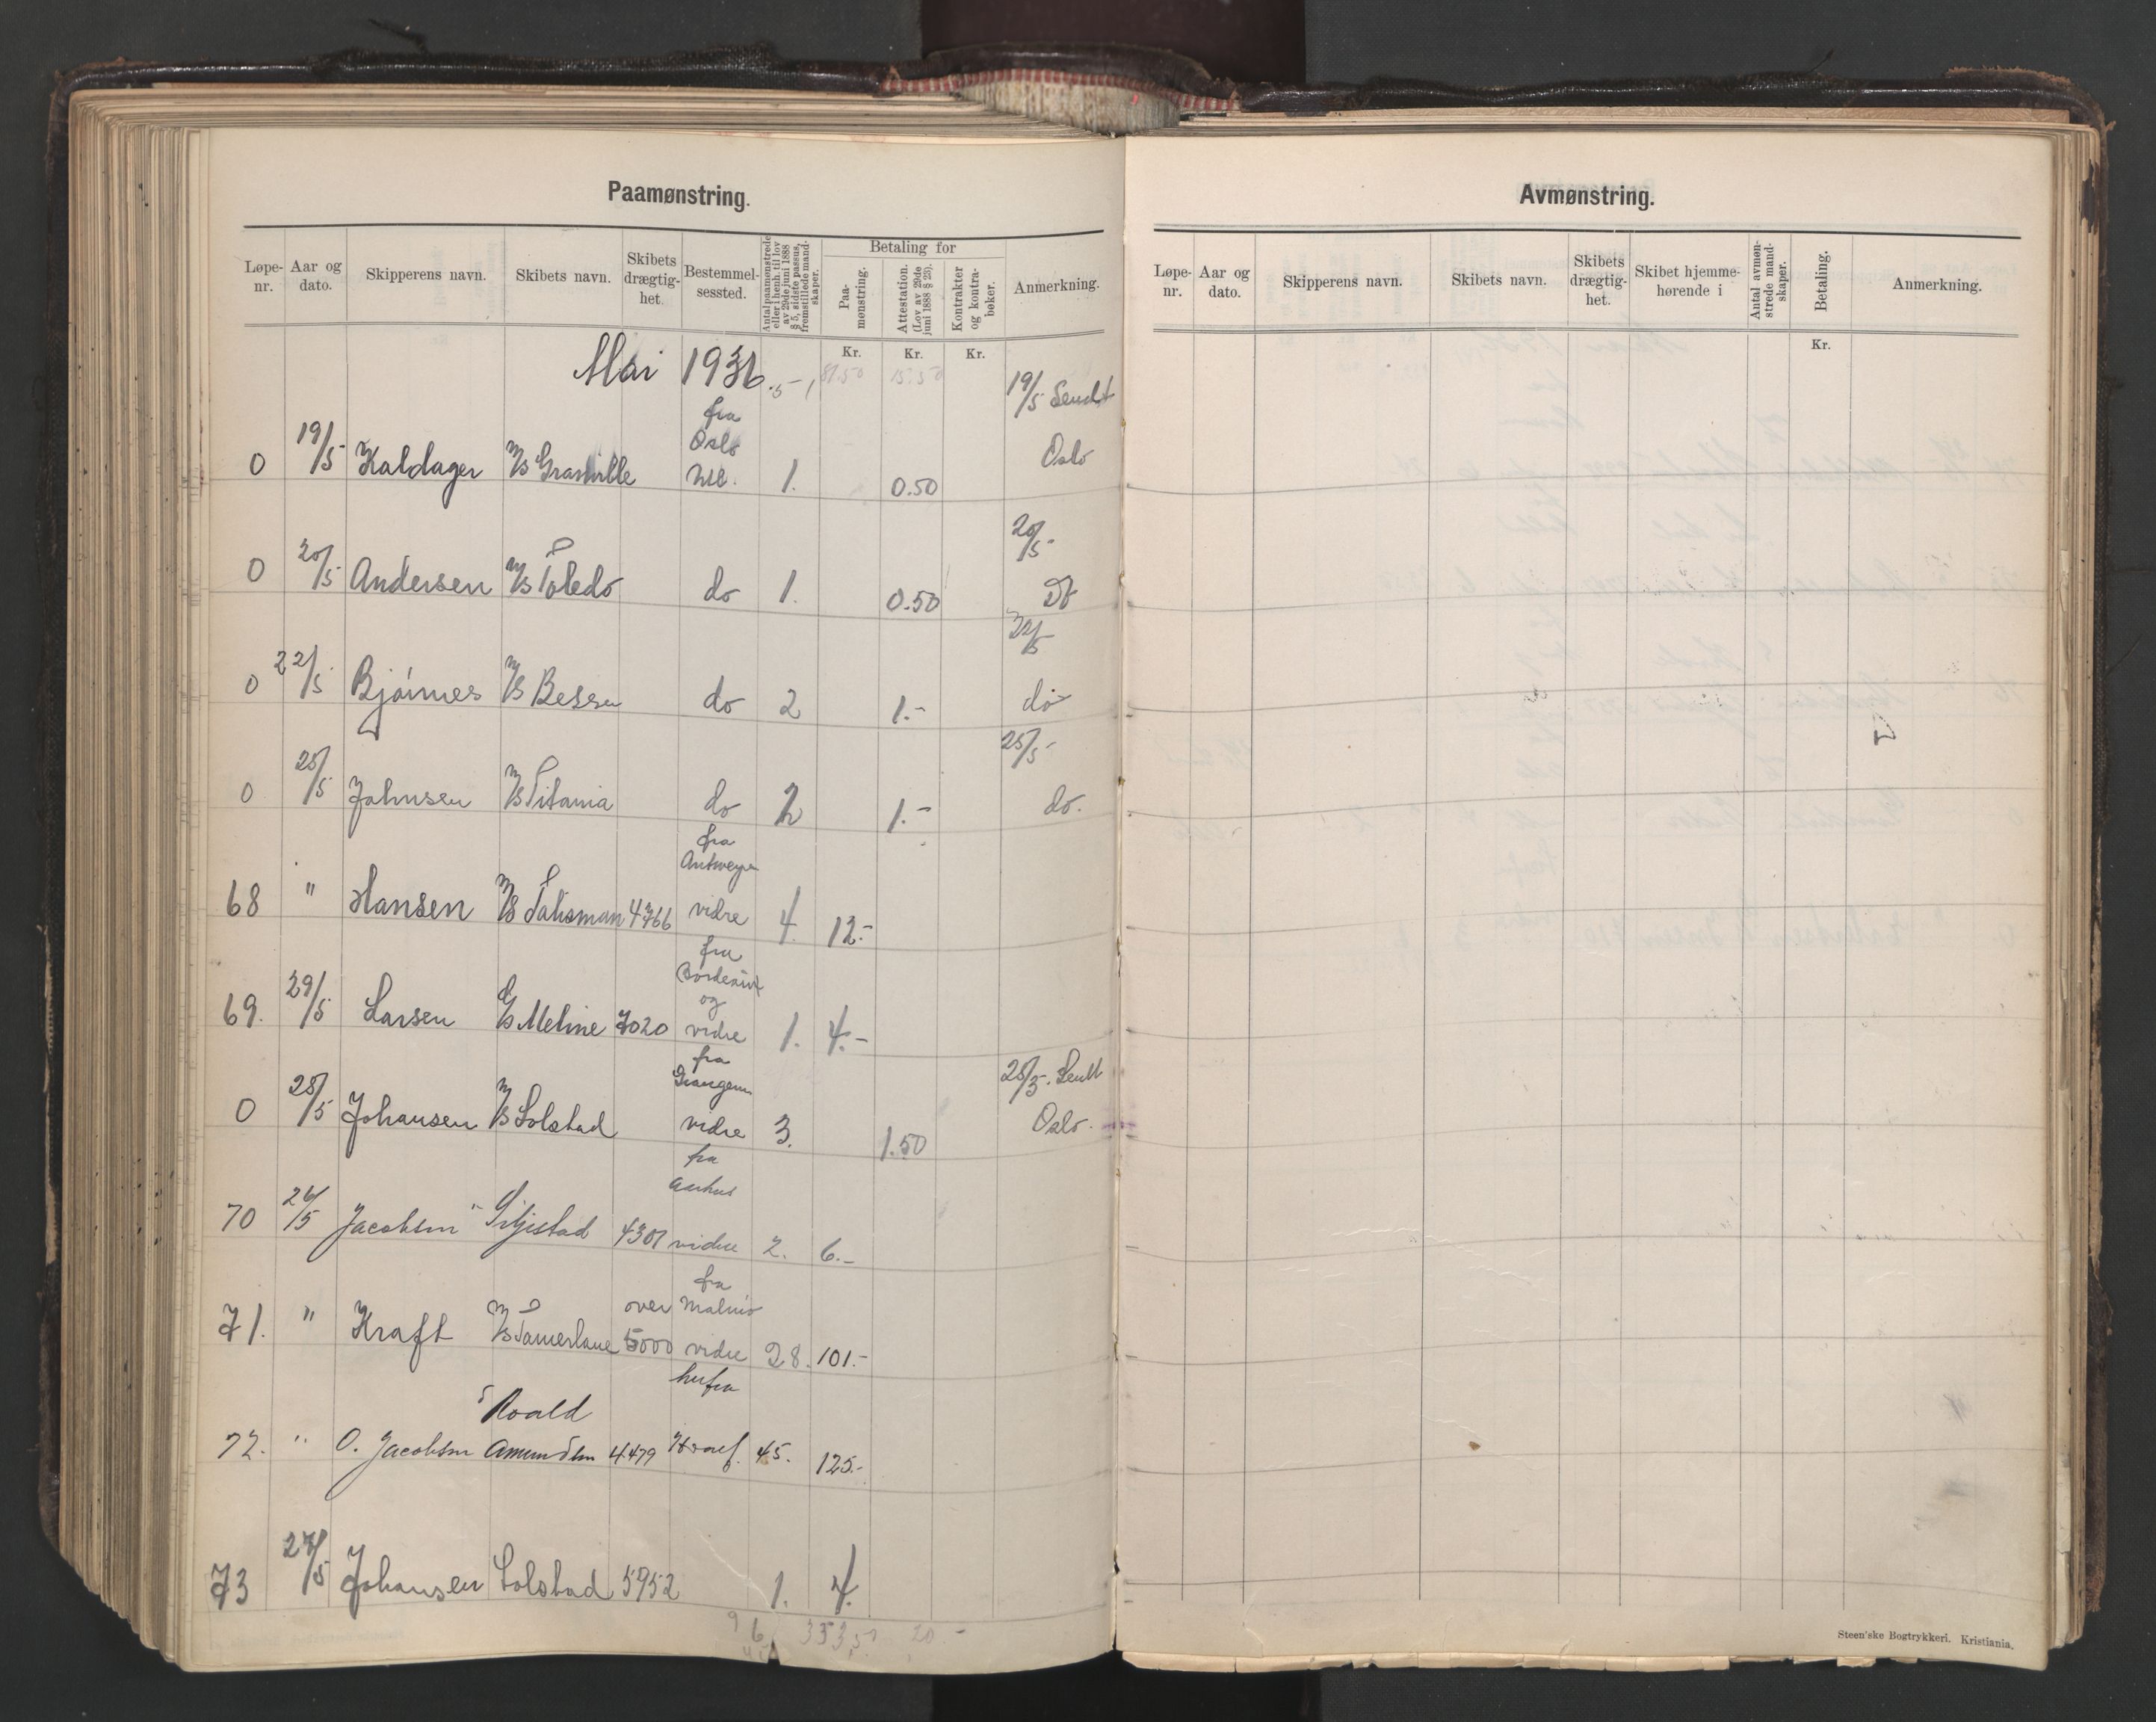 Paamønstring.
Løpe-nr. Aar og dato. Skipperens navn. Skibets navn. Skibets drægtig-het. Bestemmel-sessted. Antal paamønstrede eller i henh. til lov av 29de juni 1888 § 5, sidste passus, fremstillede mand-skaper. Betaling for Paa-mønstring. Attestation. (Lov av 29de juni 1888 § 23). Kontrakter og kontra-bøker. Anmerkning.
Kr. Kr. Kr.
Mai 1936 81.50 15.50
19/5 Sendt
fra
Oslo
0 19/5 Kaldager M/S Granville 1. 0.50 Oslo
20/5
0 20/5 Andersen M/S Toledo do 1. 0.50 do
22/5
0 22/5 Bjørnes M/S Bessa do 2 1.- do
25/5
0 25/5 Johnsen M/S Titania do 2 1.- do.
fra
Antwerpen
68 " Hansen M/S Talisman 4766 vidre 4. 12.-
fra
Bordeaux
og
69. 29/5 Larsen D/S Meline 7020 vidre 1. 4.-
fra
25/5. Sendt
0 25/5 Johansen M/S Solstad vidre 3. 1.50 Oslo.
fra
Aarhus
70 26/5 Jacobsen " Siljestad 4301 vidre 2. 6.-
fra
over Malmö
71. " Kraft M/S Tamerlane 5000 vidre 28. 101.-
herfra
S Roald
72. " O. Jacobsen Amundsen 4479 45. 125.-
73 27/5 Johansen Solstad 5952 1. 4.
96 353,50 20 -
Avmønstring.
Løpe-nr. Aar og dato. Skipperens navn. Skibets navn. Skibets drægtig-het. Skibet hjemme-hørende i Antal avmøn-strede mand-skaper. Betaling. Anmerkning.
Kr.
Steen'ske Bogtrykkeri. Kristiania.